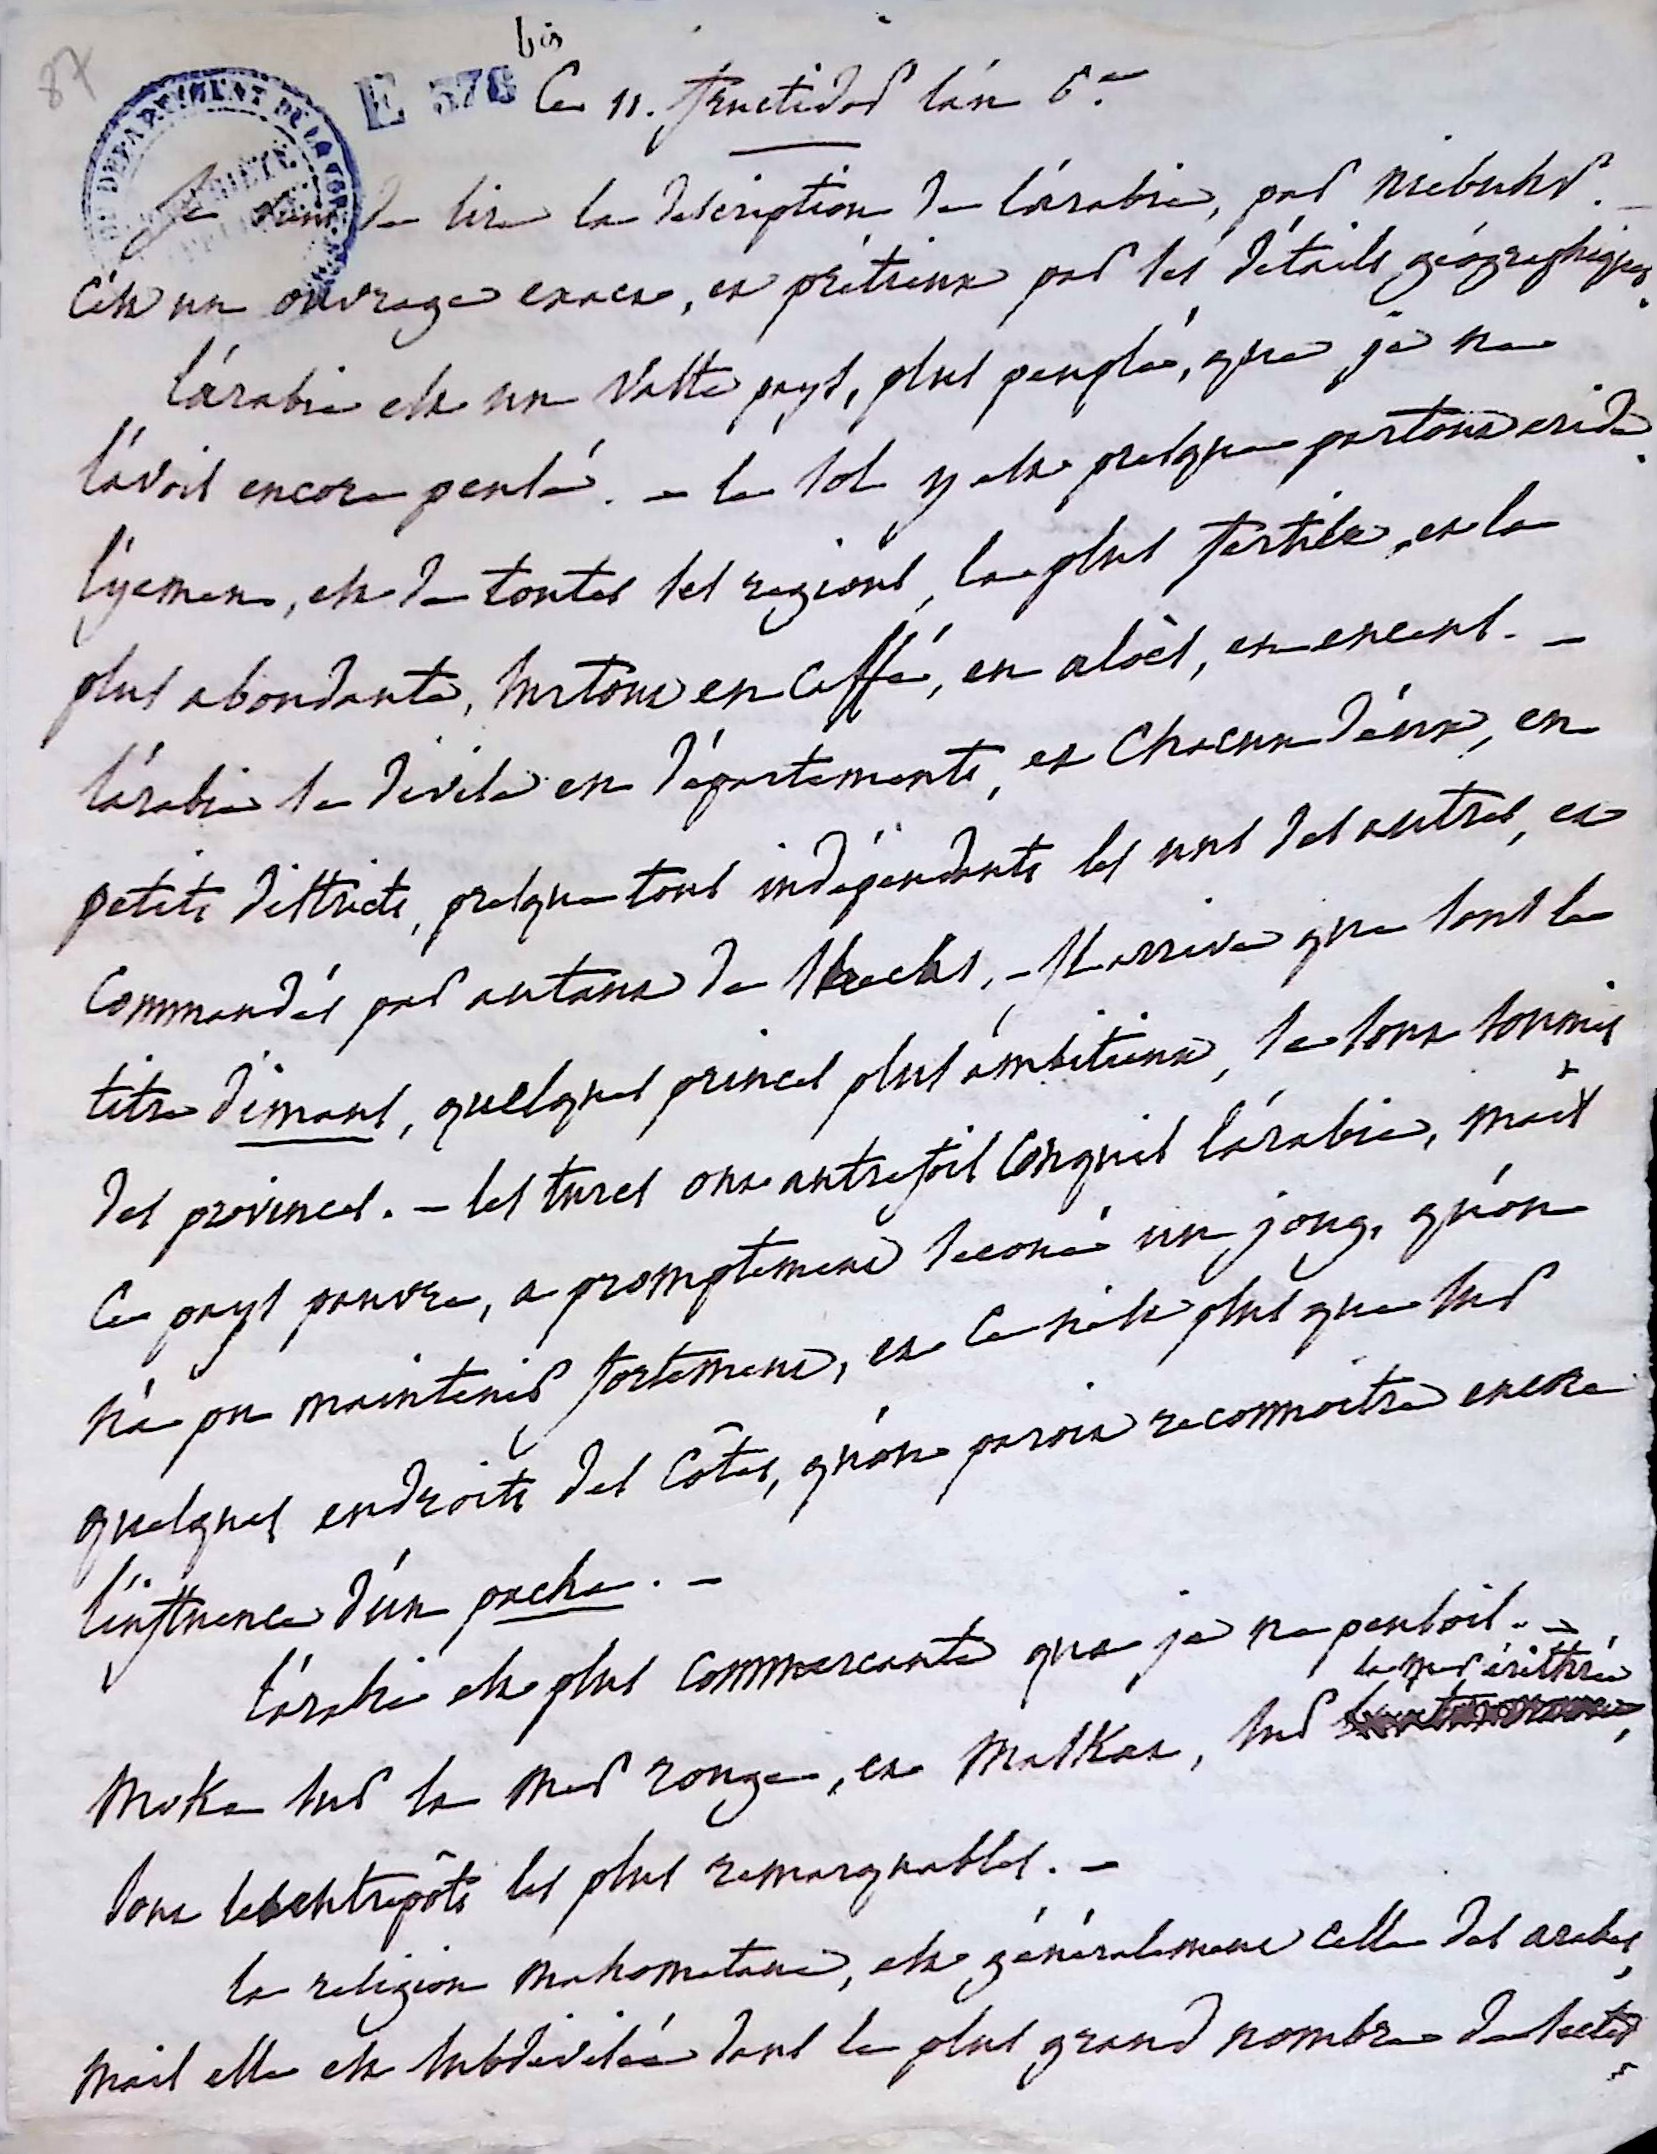 87
bis
E 376 Ce 11. fructidor l'an 6.e
Je viens de lire la description de l'arabie, par niebuhr. -
c'est un ouvrage exact, et prétieux par les détails géographiques.
l'arabie est un vaste pays, plus peuplé, que je ne
l'avois encore pensé. - le sol y est presque partout aride.
l'yemen, est de toutes les regions, la plus fertile, et la
plus abondante, surtout en caffé, en aloës, en encens. -
l'arabie se divise en départements, et chacun d'eux, en
petits districts, presque tous indépendants les uns des autres, et
commandés par autant de scheeks. - Il arrive que sous le
titre d'imans, quelques princes plus ambitieux, se sont soumis
des provinces. - les turcs ont autrefois conquis l'arabie, mais
ce pays pauvre, a promptement secoué un joug, qu'on
n'a pu maintenir fortement, et ce n'est plus que sur
quelques endroits des côtes, qu'on parois reconnoitre encore
l'influence d'un pacha. -
l'arabie est plus commercante que je ne pensois. -
la mer érithrée
Moka sur la mer rouge, et Maskat, sur
sont les entrepôts les plus remarquables. -
la religion mahometane, est généralement celle des arabes,
mais elle est subdivisée dans le plus grand nombre de sectes